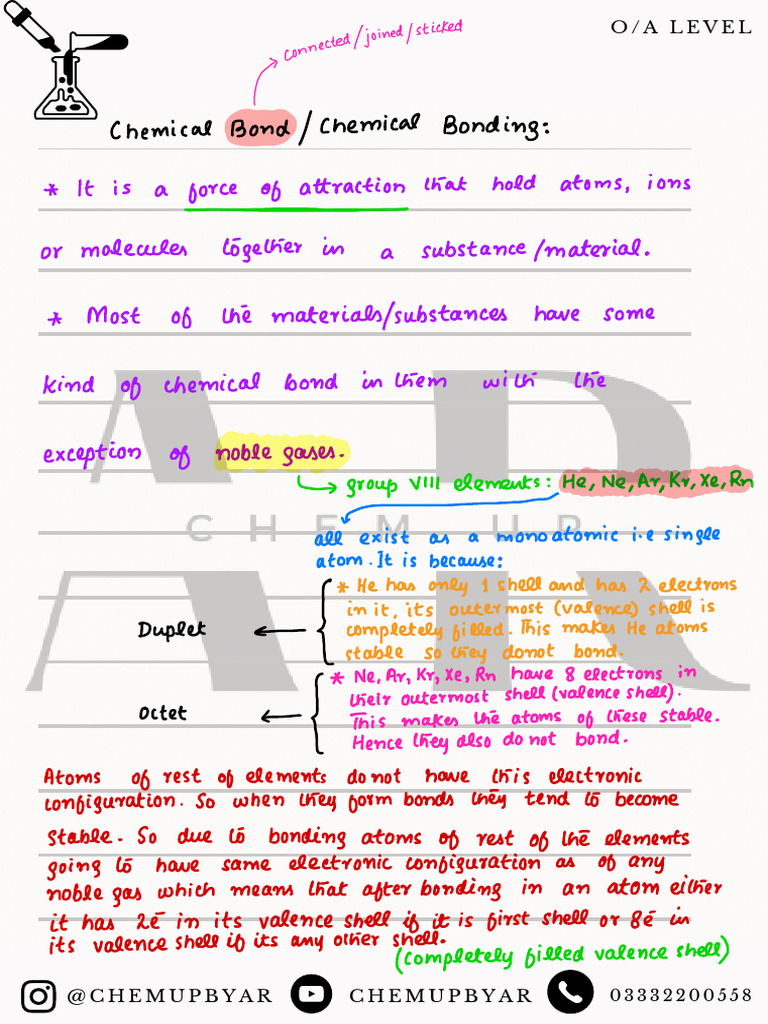 O/A LEVEL
connected/joined/sticked
Chemical Bond/Chemical Bonding:
* It is a force of attraction that hold atoms, ions
or molecules together in a substance/material.
* Most of the materials/substances have some
kind of chemical bond in them with the
exception of noble gases.
group VIII elements: He, Ne, Ar, Kr, Xe, Rn
CHEM UP
all exist as a monoatomic i.e single
atom. It is because:
* He has only 1 shell and has 2 electrons
in it, its outermost (valence) shell is
completely filled. This makes He atoms
stable so they donot bond.
Duplet
* Ne, Ar, Kr, Xe, Rn have 8 electrons in
their outermost shell (valence shell).
This makes the atoms of these stable.
Hence they also do not bond.
Octet
AR
AR
Atoms of rest of elements do not have this electronic
configuration. So when they form bonds they tend to become
stable. So due to bonding atoms of rest of the elements
going to have same electronic configuration as of any
noble gas which means that after bonding in an atom either
it has 2ē in its valence shell if it is first shell or 8ē in
its valence shell if its any other shell.
(completely filled valence shell)
@CHEMUPBYAR CHEMUPBYAR 03332200558